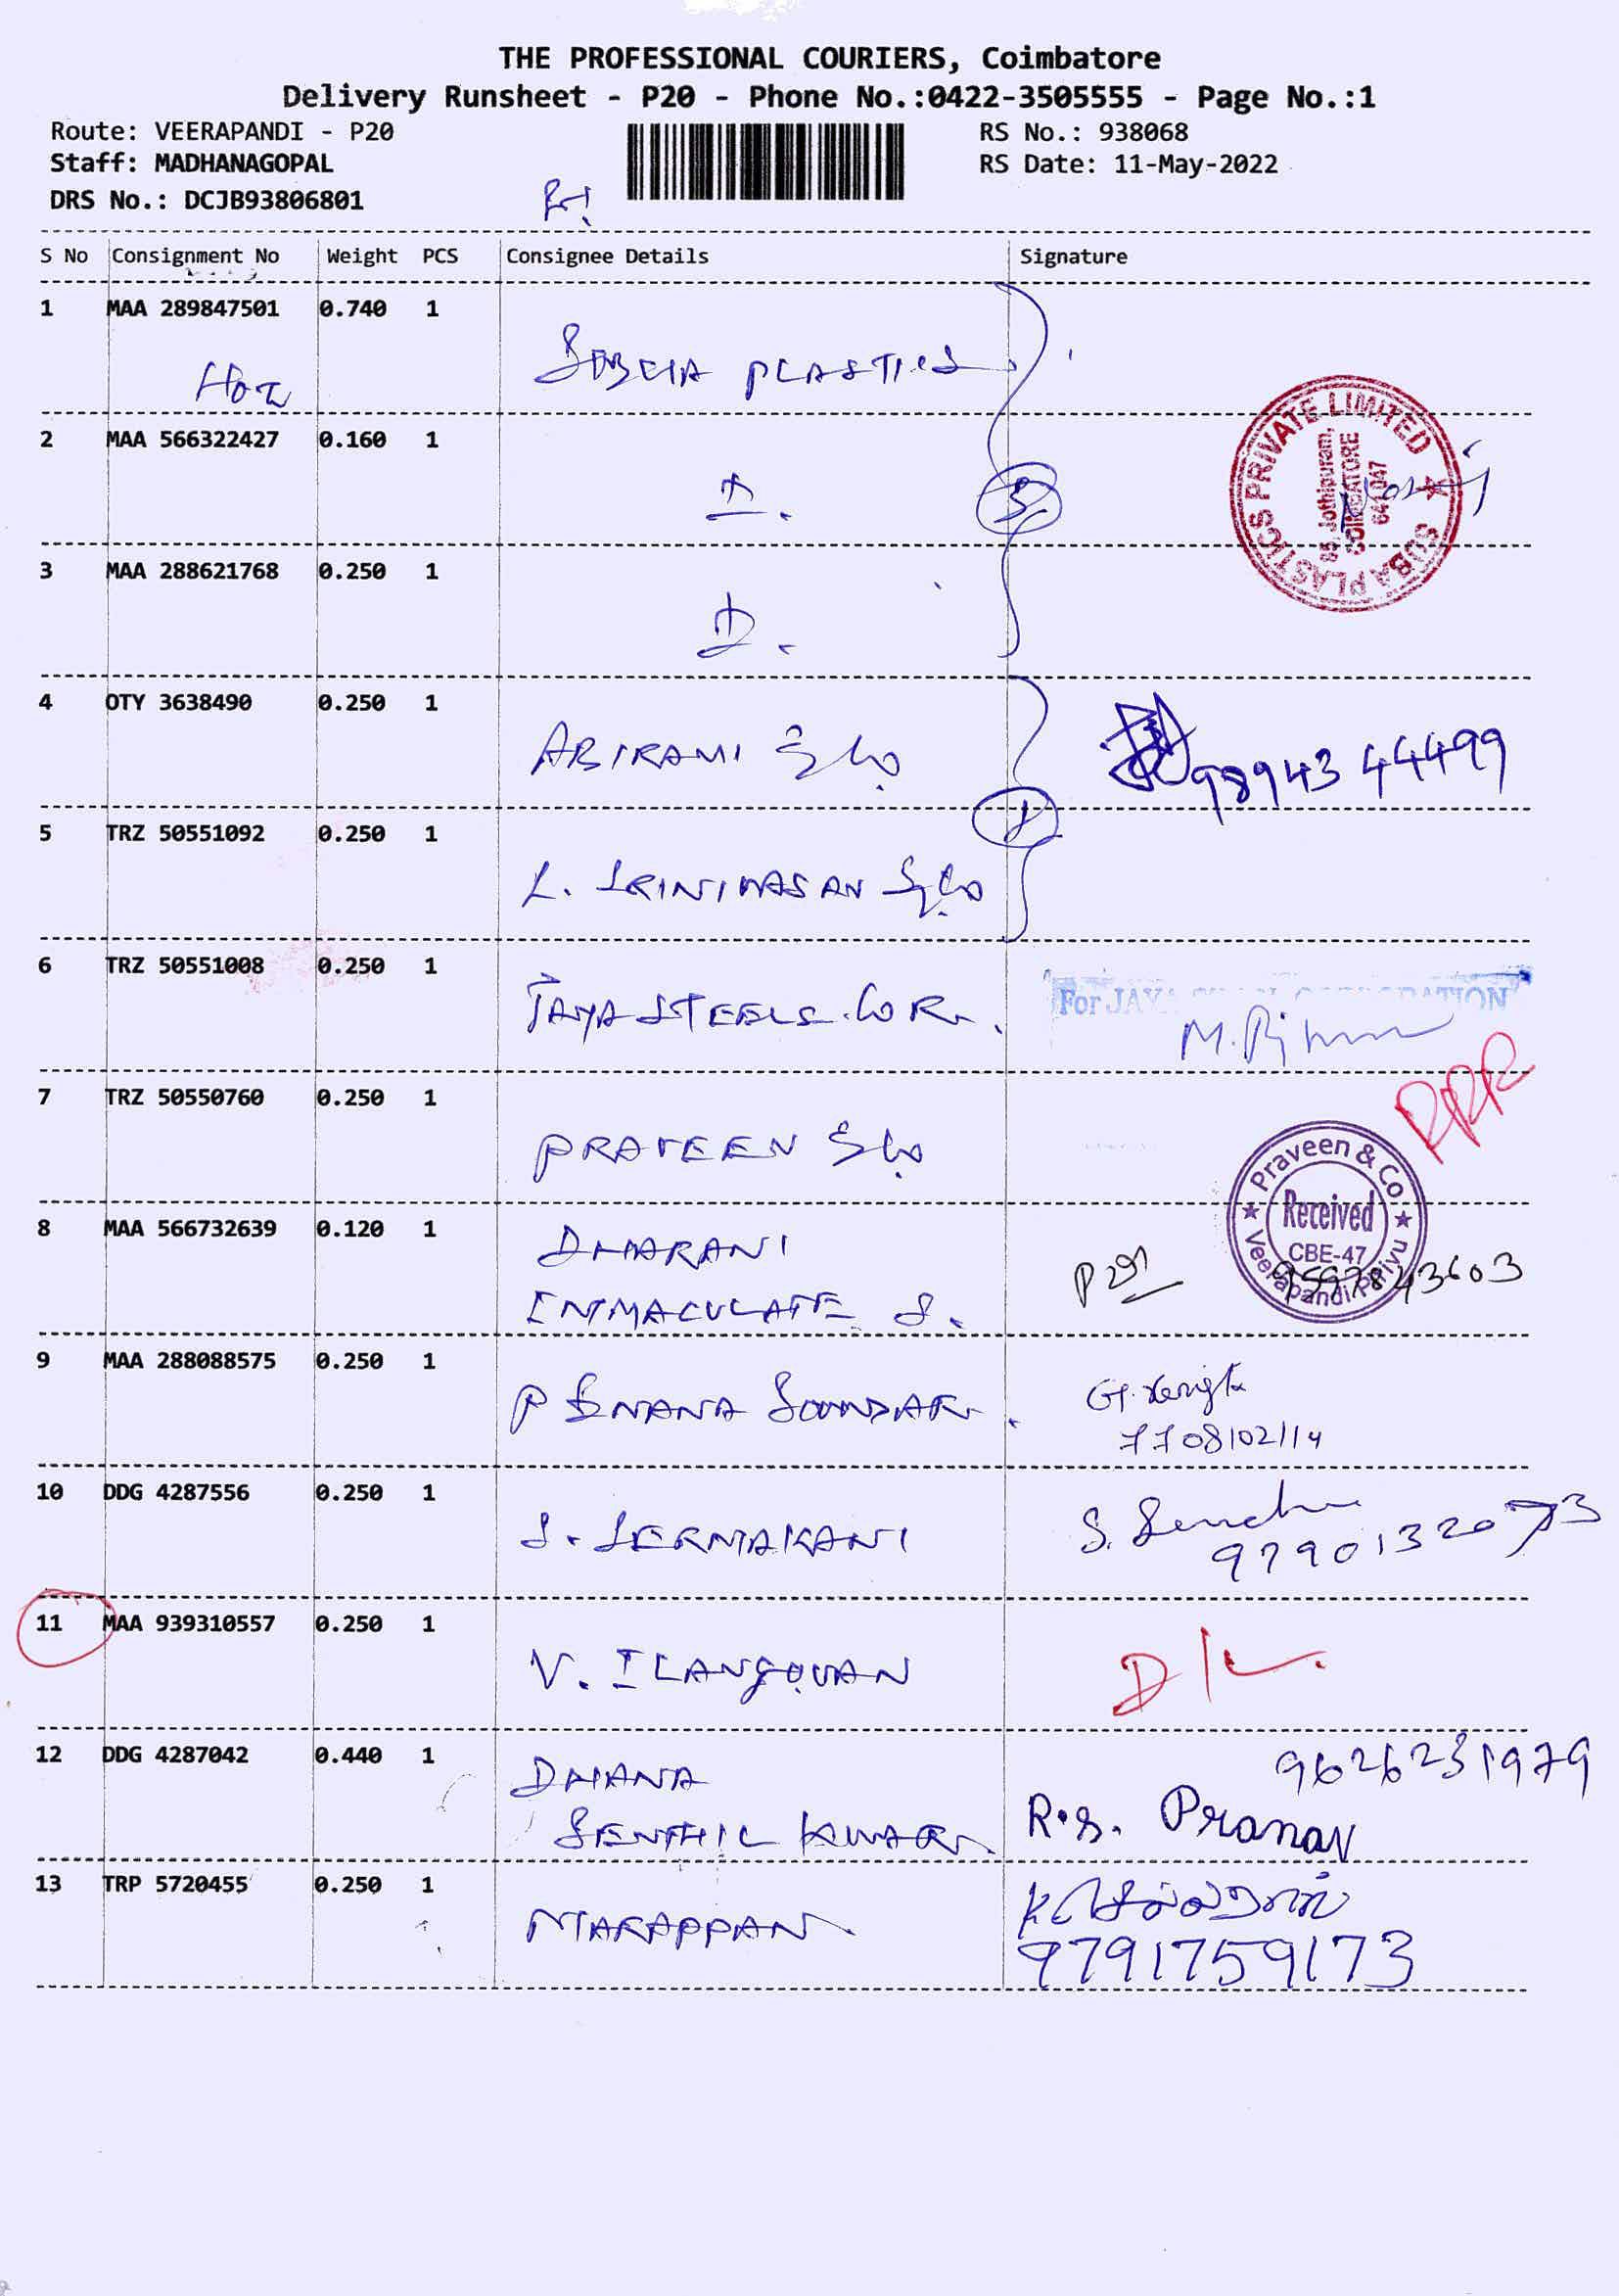 THE PROFESSIONAL COURIERS, Coimbatore
Delivery Runsheet - P20 - Phone No.:0422-3505555 - Page No.:1
Route: VEERAPANDI - P20
RS No.: 938068
Staff: MADHANAGOPAL
RS Date: 11-May-2022
DRS No.: DCJB93806801
S No Consignment No Weight PCS Consignee Details Signature
1 MAA 289847501 0.740 1
PLASTICS
2 MAA 566322427 0.160 1
SUBA PLASTICS PRIVATE LIMITED
Jothipuram,
COIMBATORE
641 047
3 MAA 288621768 0.250 1
4 OTY 3638490 0.250 1
ABIRAMI & Co
98943 44499
5 TRZ 50551092 0.250 1
L. SRINIVASAN & Co
6 TRZ 50551008 0.250 1
JAYA STEELS COR.
For JAYA
7 TRZ 50550760 0.250 1
PRAVEEN & Co
RPR
Praveen & Co
Received
CBE-47
Veerapandi Piriyu
8 MAA 566732639 0.120 1
DHARANI
IMMACULATE S.
9597843603
9 MAA 288088575 0.250 1
P GNANA SOUNDAR
7708102114
10 DDG 4287556 0.250 1
S. SERMAKANI
9790132073
11 MAA 939310557 0.250 1
V. ILANGOVAN
D/L.
12 DDG 4287042 0.440 1
DHANA
SENTHIL KUMAR
9626231979
R.S. Pranav
13 TRP 5720455 0.250 1
MARAPPAN
9791759173